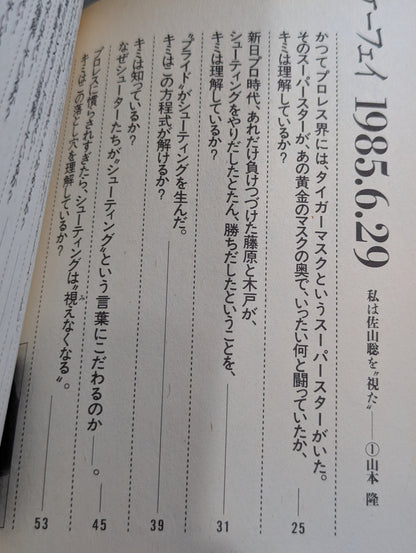 ーフェイ 1985.6.29
私は佐山聡を〝視た〟── ①山本 隆
かつてプロレス界には、タイガーマスクというスーパースターがいた。
そのスーパースターが、あの黄金のマスクの奥で、いったい何と闘っていたか、
キミは理解しているか? 25
新日プロ時代、あれだけ負けつづけた藤原と木戸が、
シューティングをやりだしたとたん、勝ちだしたということを、
キミは理解しているか? 31
〝プライド〟がシューティングを生んだ。
キミはこの方程式が解けるか? 39
キミは知っているか?
なぜシューターたちが〝シューティング〟という言葉にこだわるのか──。 45
プロレスに慣らされすぎたら、シューティングは〝視えなくなる〟。
キミはこの落とし穴を理解しているか? 53